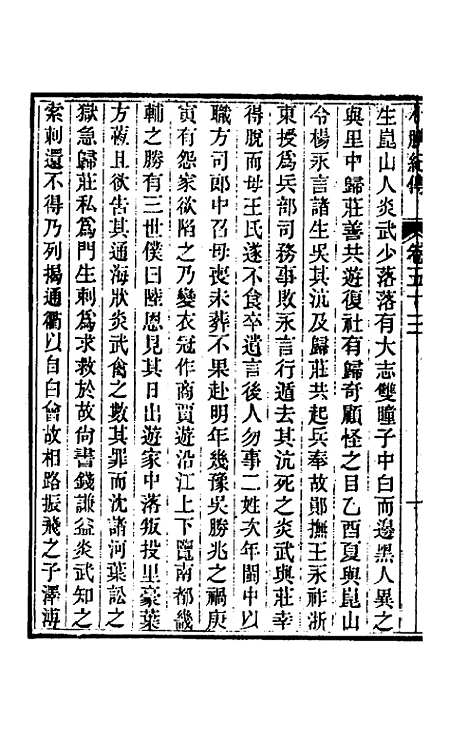 小腆紀傳 卷五十三
生崑山人炎武少落落有大志雙瞳子中白而邊黑人異之
與里中歸莊善共遊復社有歸奇顧怪之目乙酉夏與崑山
令楊永言諸生吳其沆及歸莊共起兵奉故鄖撫王永祚浙
東授爲兵部司務事敗永言行遁去其沆死之炎武與莊幸
得脫而母王氏遂不食卒遺言後人勿事二姓次年閩中以
職方司郎中召母喪未葬不果赴明年幾豫吳勝兆之禍庚
寅有怨家欲陷之乃變衣冠作商賈遊沿江上下覽南都畿
輔之勝有三世僕曰陸恩見其日出遊家中落叛投里豪葉
方蕸且欲告其通海狀炎武禽之數其罪而沈諸河葉訟之
獄急歸莊私爲門生刺爲求救於故尙書錢謙益炎武知之
索刺還不得乃列揭通衢以自白會故相路振飛之子澤溥